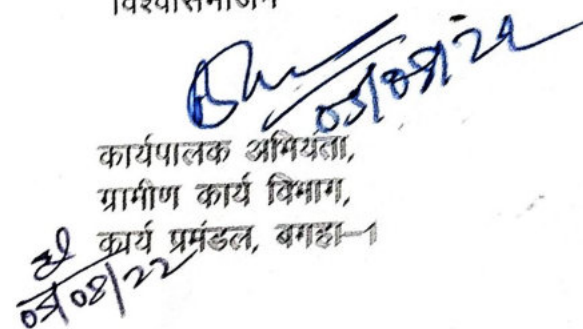 विश्वासभाजन
05/08/22
कार्यपालक अभियंता,
ग्रामीण कार्य विभाग,
कार्य प्रमंडल, बगहा-1
05/08/22